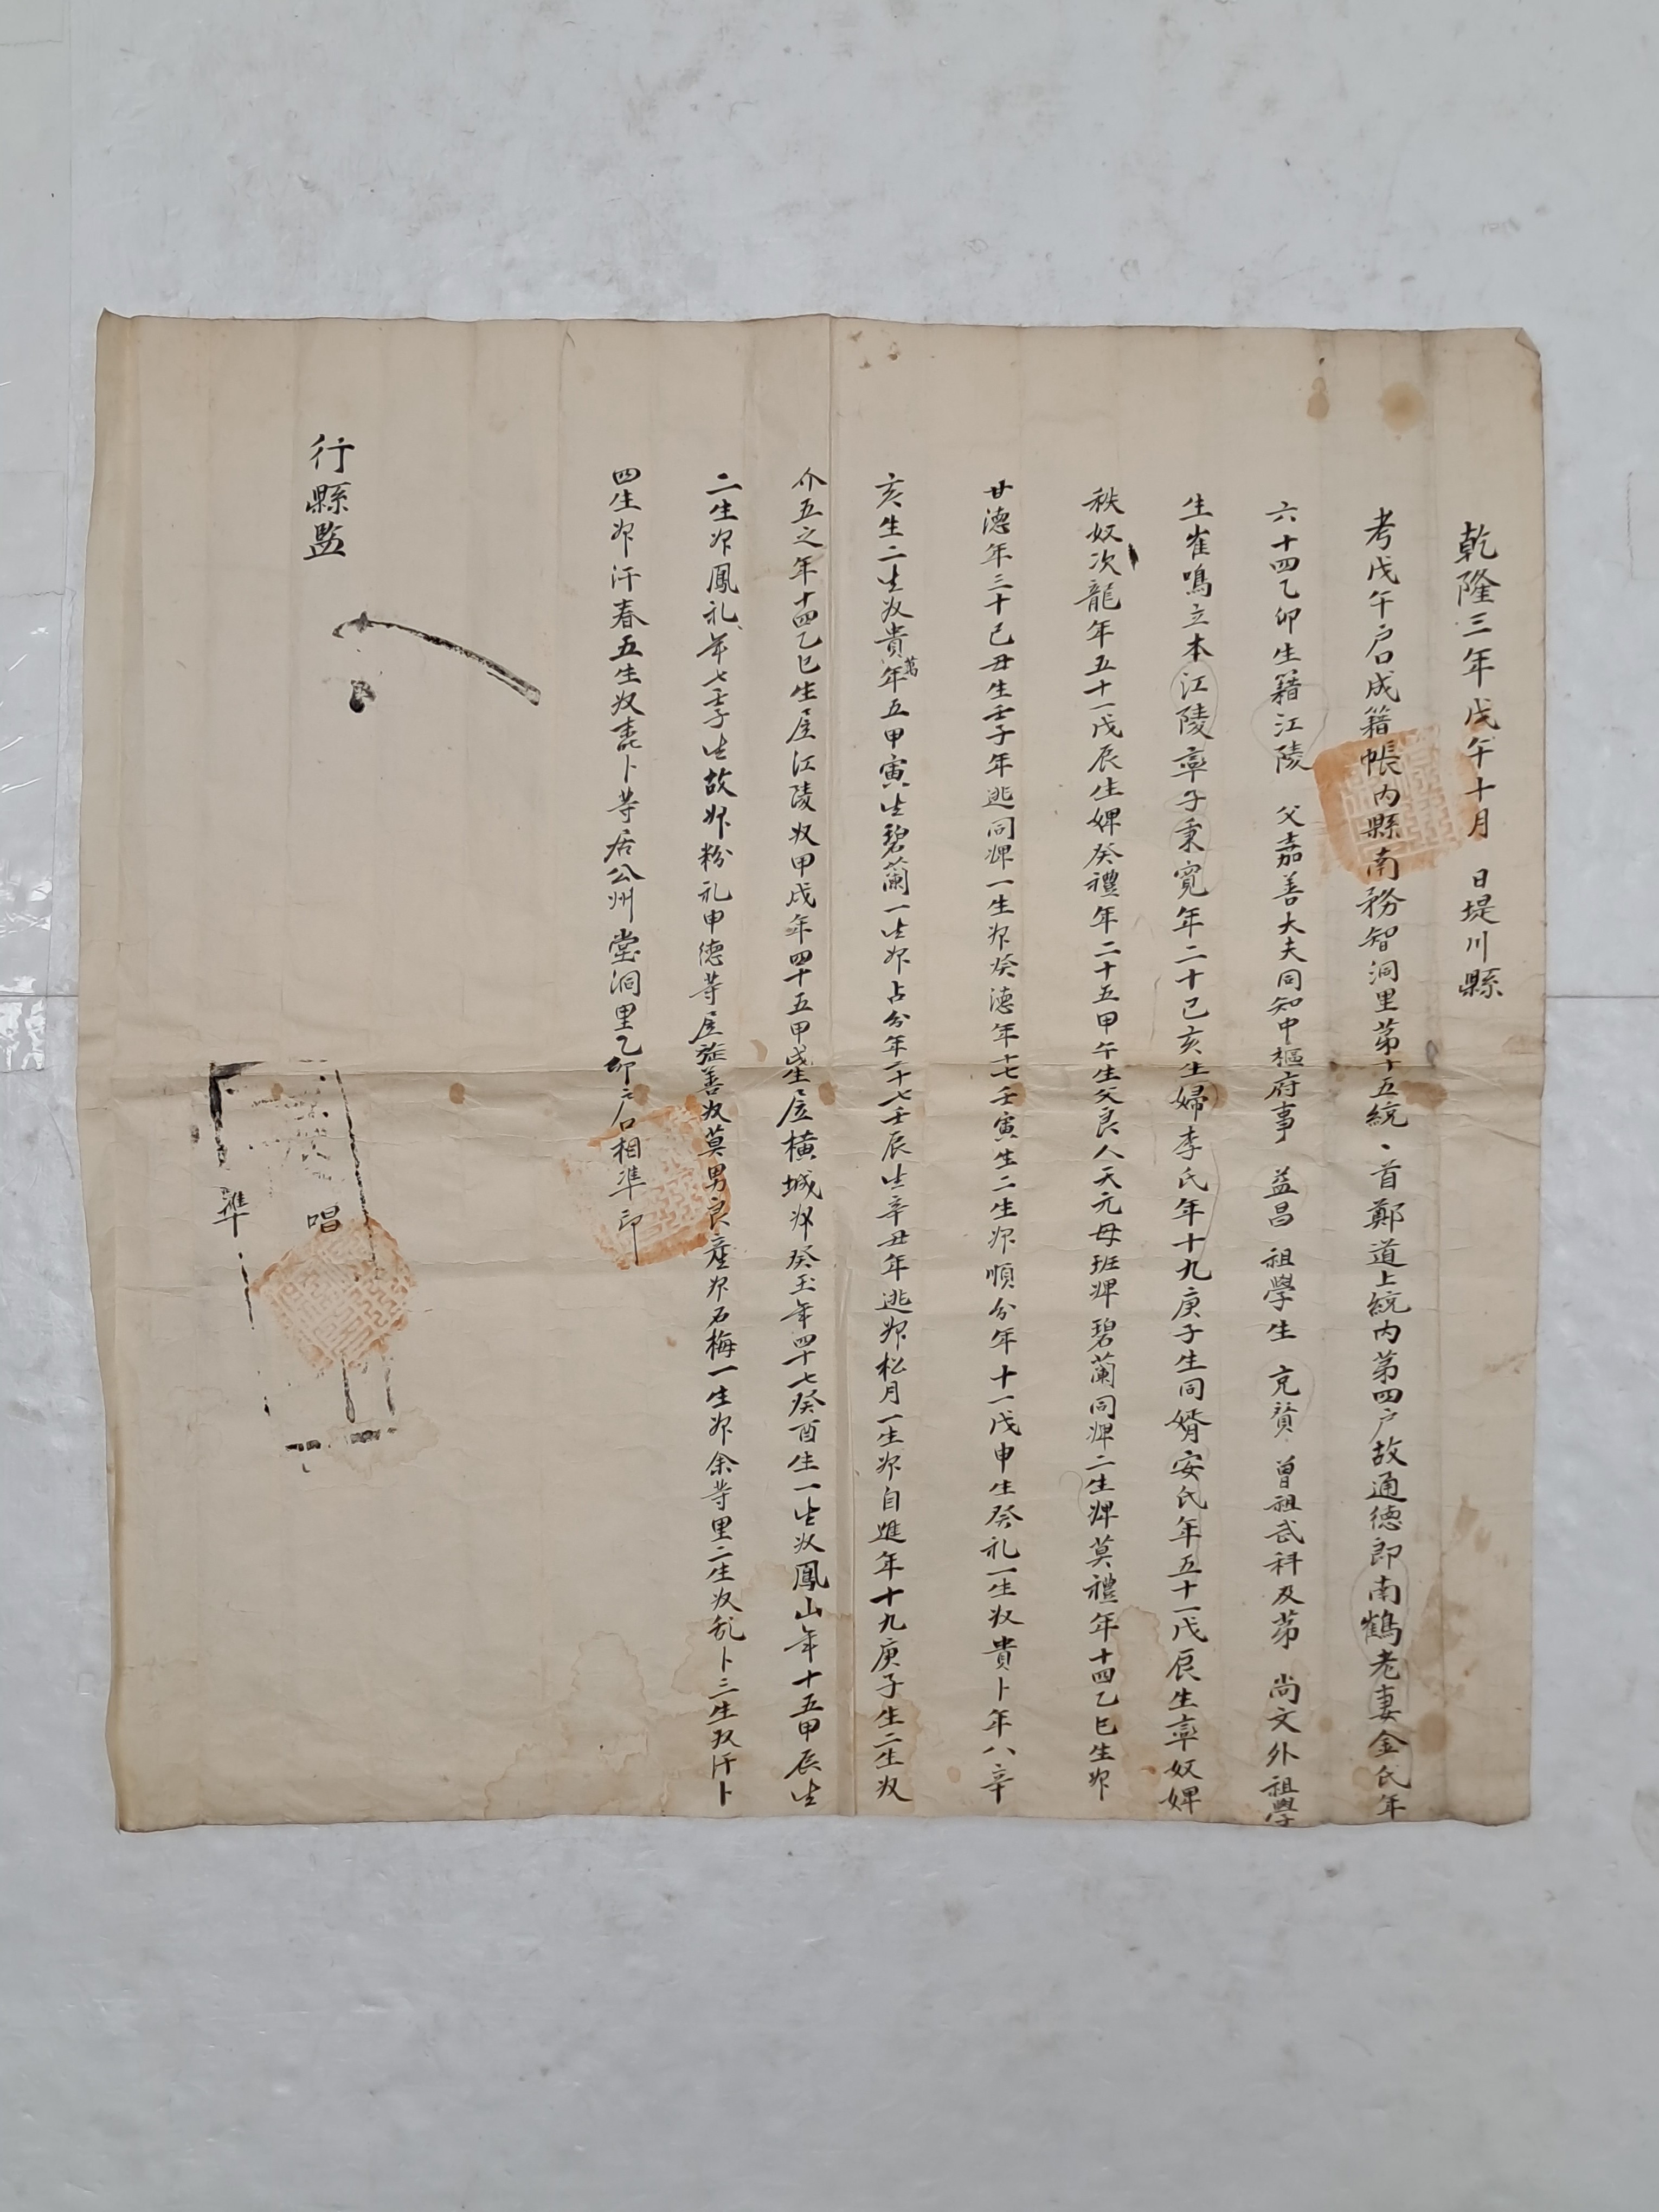 乾隆三年戊午十月 日堤川縣
考戊午户口成籍帳內縣南務智洞里第十五統、首鄭道上統內第四户故通德郎南鶴老妻金氏年
六十四乙卯生籍江陵 父嘉善大夫同知中樞府事 益昌 祖學生 克贇 曾祖武科及第 尚文外祖學
生崔鳴立本江陵率子秉寬年二十己亥生婦李氏年十九庚子生同婿安氏年五十一戊辰生率奴婢
秩奴次龍年五十一戊辰生婢癸禮年二十五甲午生父良人天元母班婢碧蘭同婢二生婢莫禮年十四乙巳生婢
甘德年三十己丑生壬子年逃同婢一生婢癸德年十七壬寅生二生婢順分年十一戊申生癸礼一生奴貴卜年八辛
亥生二生奴貴萬年五甲寅生碧蘭一生婢占分年二十七壬辰生辛丑年逃婢松月一生婢自進年十九庚子生二生奴
介五之年十四乙巳生居江陵奴甲戌年四十五甲戌生居橫城婢癸玉年四十七癸酉生一生奴鳳山年十五甲辰生
二生婢鳳礼年七壬子生故婢粉礼甲德等居旌善奴莫男良產婢石梅一生婢余等里二生奴乱卜三生奴汗卜
四生婢汗春五生奴卜等居公州堂洞里乙卯户口相準印
行縣監
唱
準